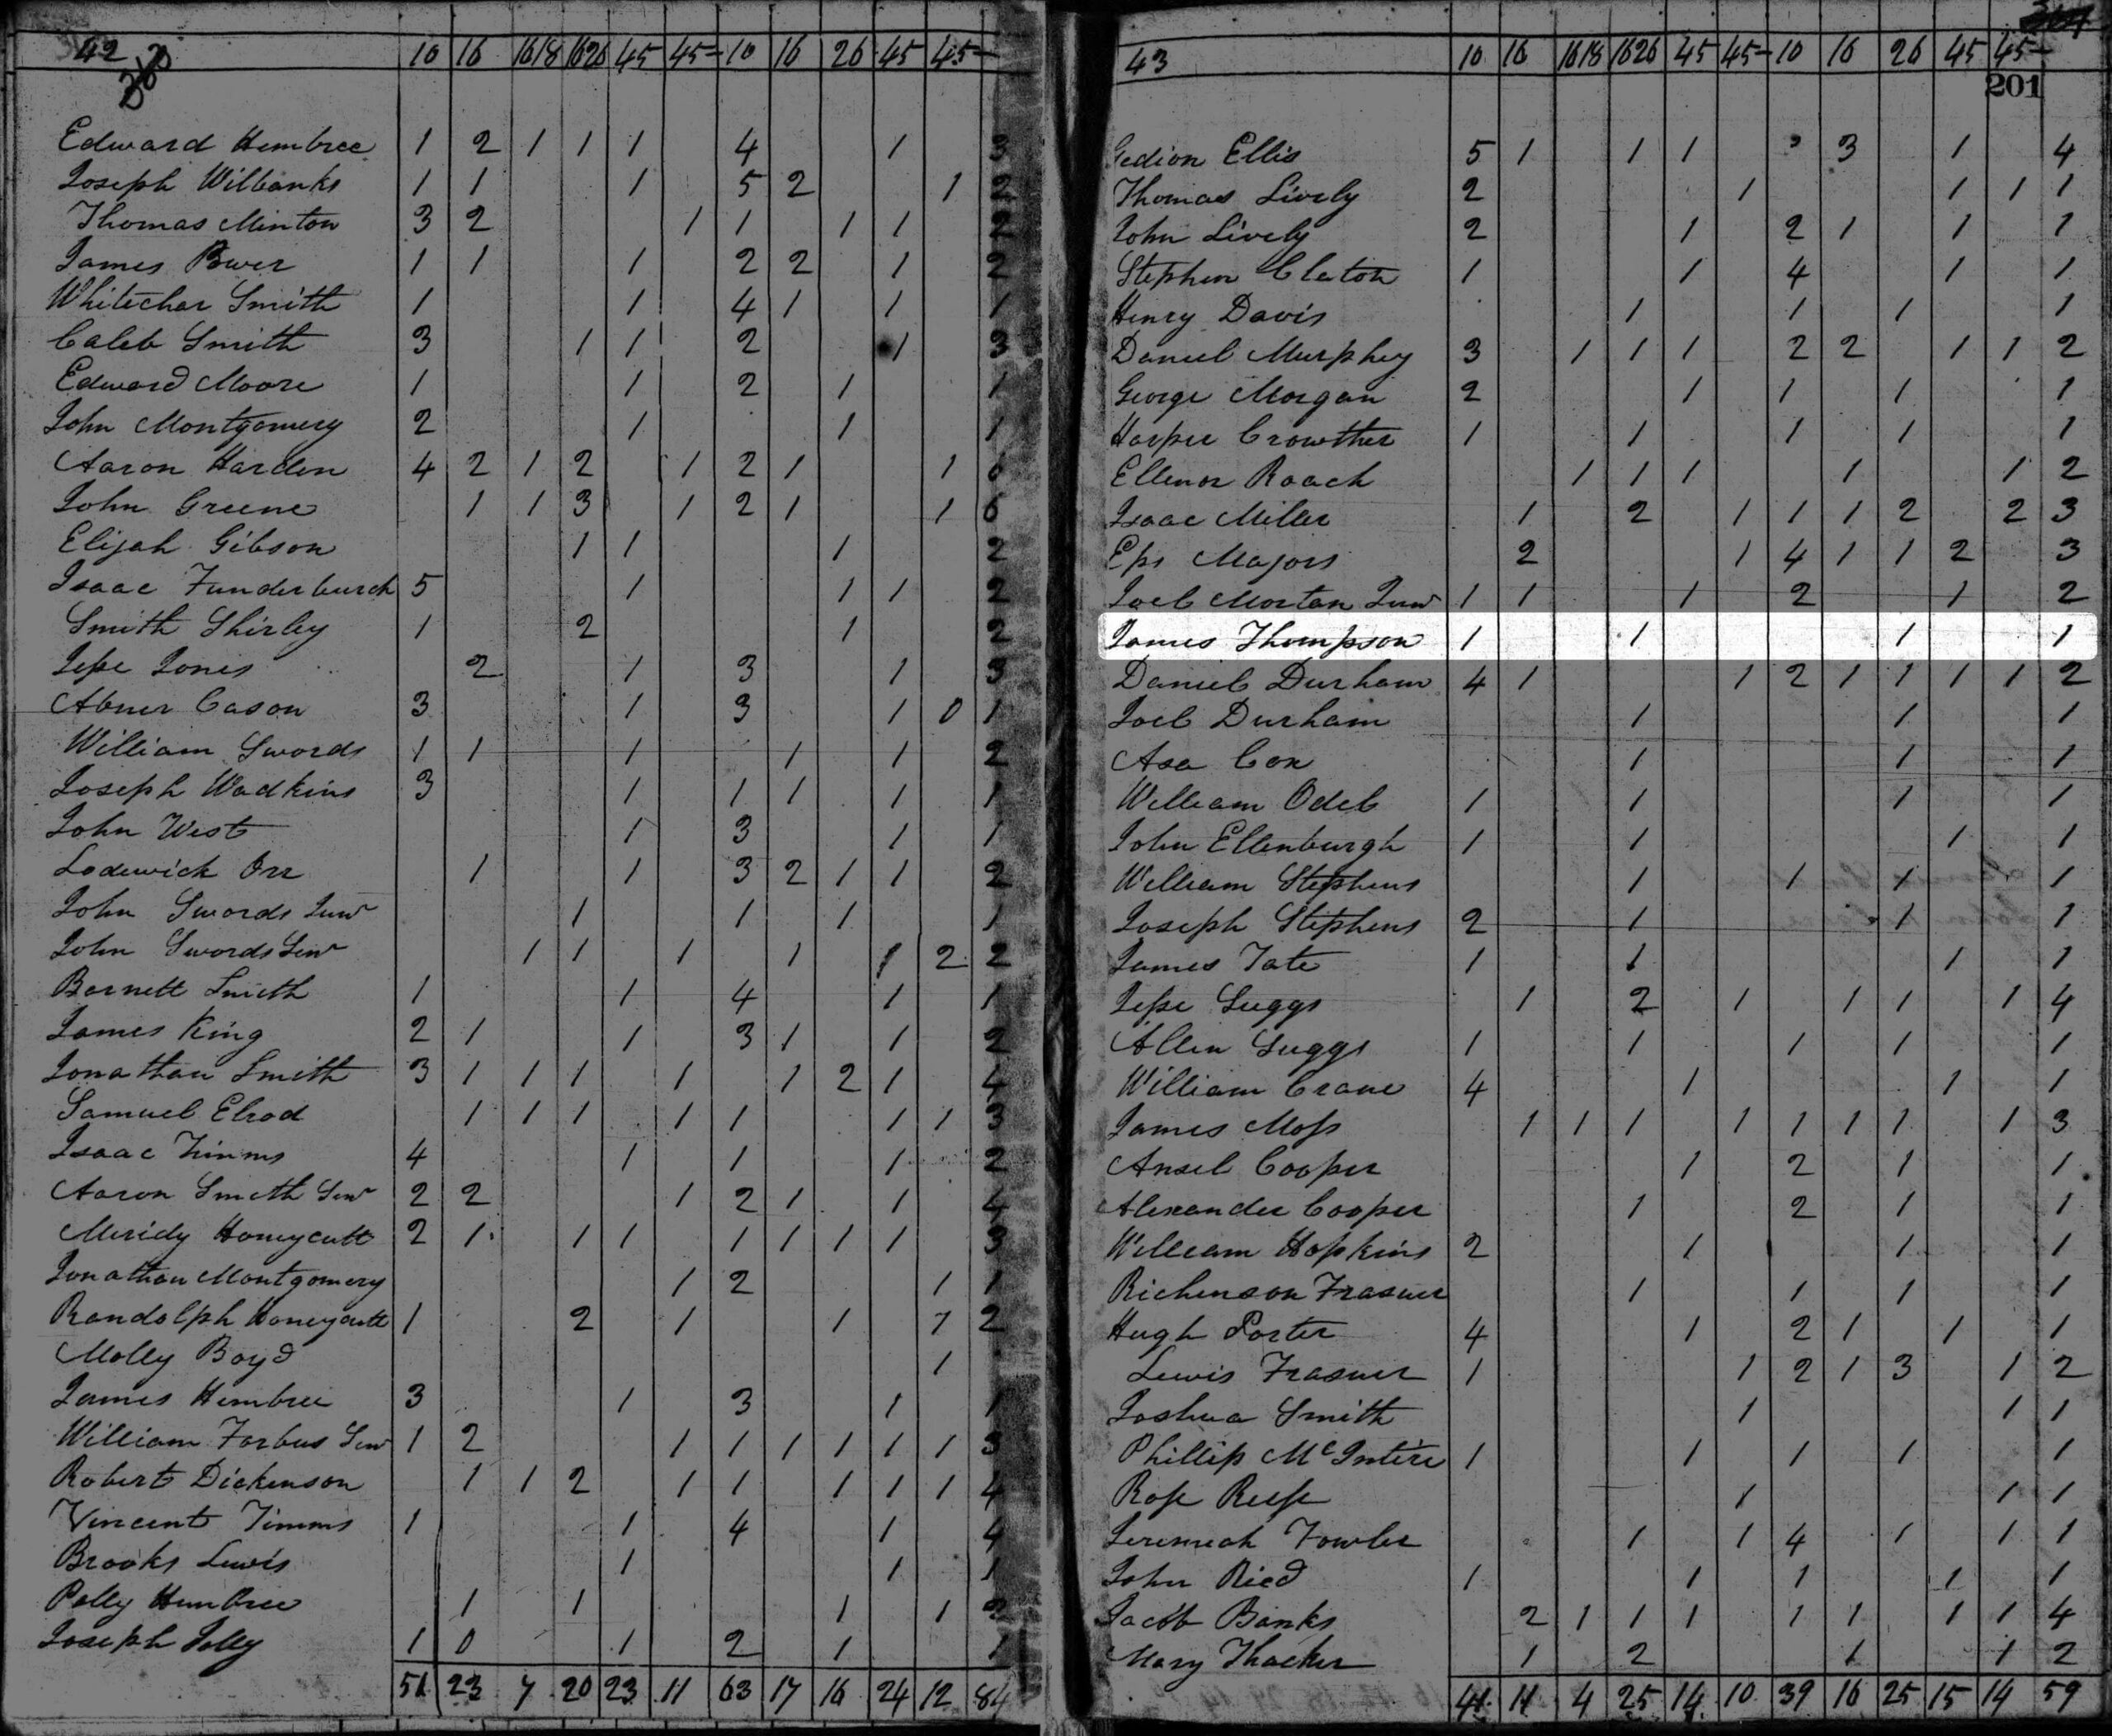 42 10 16 1618 1626 45 45- 10 16 26 45 45-
Edward Hembree 1 2 1 1 1 4 1 3
Joseph Wilbanks 1 1 1 5 2 1 2
Thomas Minton 3 2 1 1 1 1 2
James Bwer 1 1 1 2 2 1 2
Whitechar Smith 1 1 4 1 1 1
Caleb Smith 3 1 1 2 1 3
Edward Moore 1 1 2 1 1
John Montgomery 2 1 1 1
Aaron Harden 4 2 1 2 1 2 1 1 6
John Greene 1 1 3 1 2 1 1 6
Elijah Gibson 1 1 1 2
Isaac Funderburch 5 1 1 1 2
Smith Shirley 1 2 1 2
Jesse Jones 2 1 3 1 3
Abner Cason 3 1 3 1 0 1
William Swords 1 1 1 1 1 2
Joseph Wadkins 3 1 1 1 1 1
John West 1 3 1 1
Lodewick Orr 1 1 3 2 1 1 2
John Swords Junr 1 1 1 1
John Swords Senr 1 1 1 1 1 2 2
Barnett Smith 1 1 4 1 1
James King 2 1 1 3 1 1 2
Jonathan Smith 3 1 1 1 1 1 2 1 4
Samuel Elrod 1 1 1 1 1 1 1 3
Isaac Timms 4 1 1 1 2
Aaron Smith Senr 2 2 1 2 1 1 4
Meridy Honeycutt 2 1 1 1 1 1 1 1 3
Jonathan Montgomery 1 2 1 1
Randolph Honeycutt 1 2 1 1 1 2
Molly Boyd 1
James Hembree 3 1 3 1 1
William Forbus Senr 1 2 1 1 1 1 1 1 3
Robert Dickenson 1 1 2 1 1 1 1 1 4
Vincent Timms 1 1 4 1 4
Brooks Lewis 1 1 1
Polly Hembree 1 1 1 1 2
Joseph Jolly 1 0 1 2 1 1
51 23 7 20 23 11 63 17 16 24 12 84
43 10 16 1618 1626 45 45- 10 16 26 45 45-
201
Gedion Ellis 5 1 1 1 3 3 1 4
Thomas Lively 2 1 1 1 1
John Lively 2 1 2 1 1 1
Stephen Claton 1 1 4 1 1
Henry Davis 1 1 1 1
Daniel Murphey 3 1 1 1 2 2 1 1 2
George Morgan 2 1 1 1 1
Harper Crowther 1 1 1 1 1
Ellenor Roach 1 1 1 1 1 2
Isaac Miller 1 2 1 1 1 2 2 3
Eps Majors 2 1 4 1 1 2 3
Joel Morton Junr 1 1 1 2 1 2
James Thompson 1 1 1 1
Daniel Durham 4 1 1 2 1 1 1 1 2
Joel Durham 1 1 1
Asa Cox 1 1 1
William Odel 1 1 1 1
John Ellenburgh 1 1 1 1
William Stephens 1 1 1 1
Joseph Stephens 2 1 1 1
James Tate 1 1 1 1
Jesse Suggs 1 2 1 1 1 1 4
Allen Suggs 1 1 1 1 1
William Crane 4 1 1 1
James Moss 1 1 1 1 1 1 1 1 3
Ansel Cooper 1 2 1 1
Alexander Cooper 1 2 1 1
William Hopkins 2 1 1 1
Richenson Frasuer 1 1 1 1
Hugh Porter 4 1 2 1 1 1
Lewis Frasuer 1 1 2 1 3 1 2
Joshua Smith 1 1 1
Phillip McIntire 1 1 1 1 1
Rose Reese 1 1 1
Jeremiah Fowler 1 1 4 1 1 1
John Ried 1 1 1 1 1
Jacob Banks 2 1 1 1 1 1 1 1 4
Mary Thacker 1 2 1 1 2
41 11 4 25 14 10 39 16 25 15 14 59